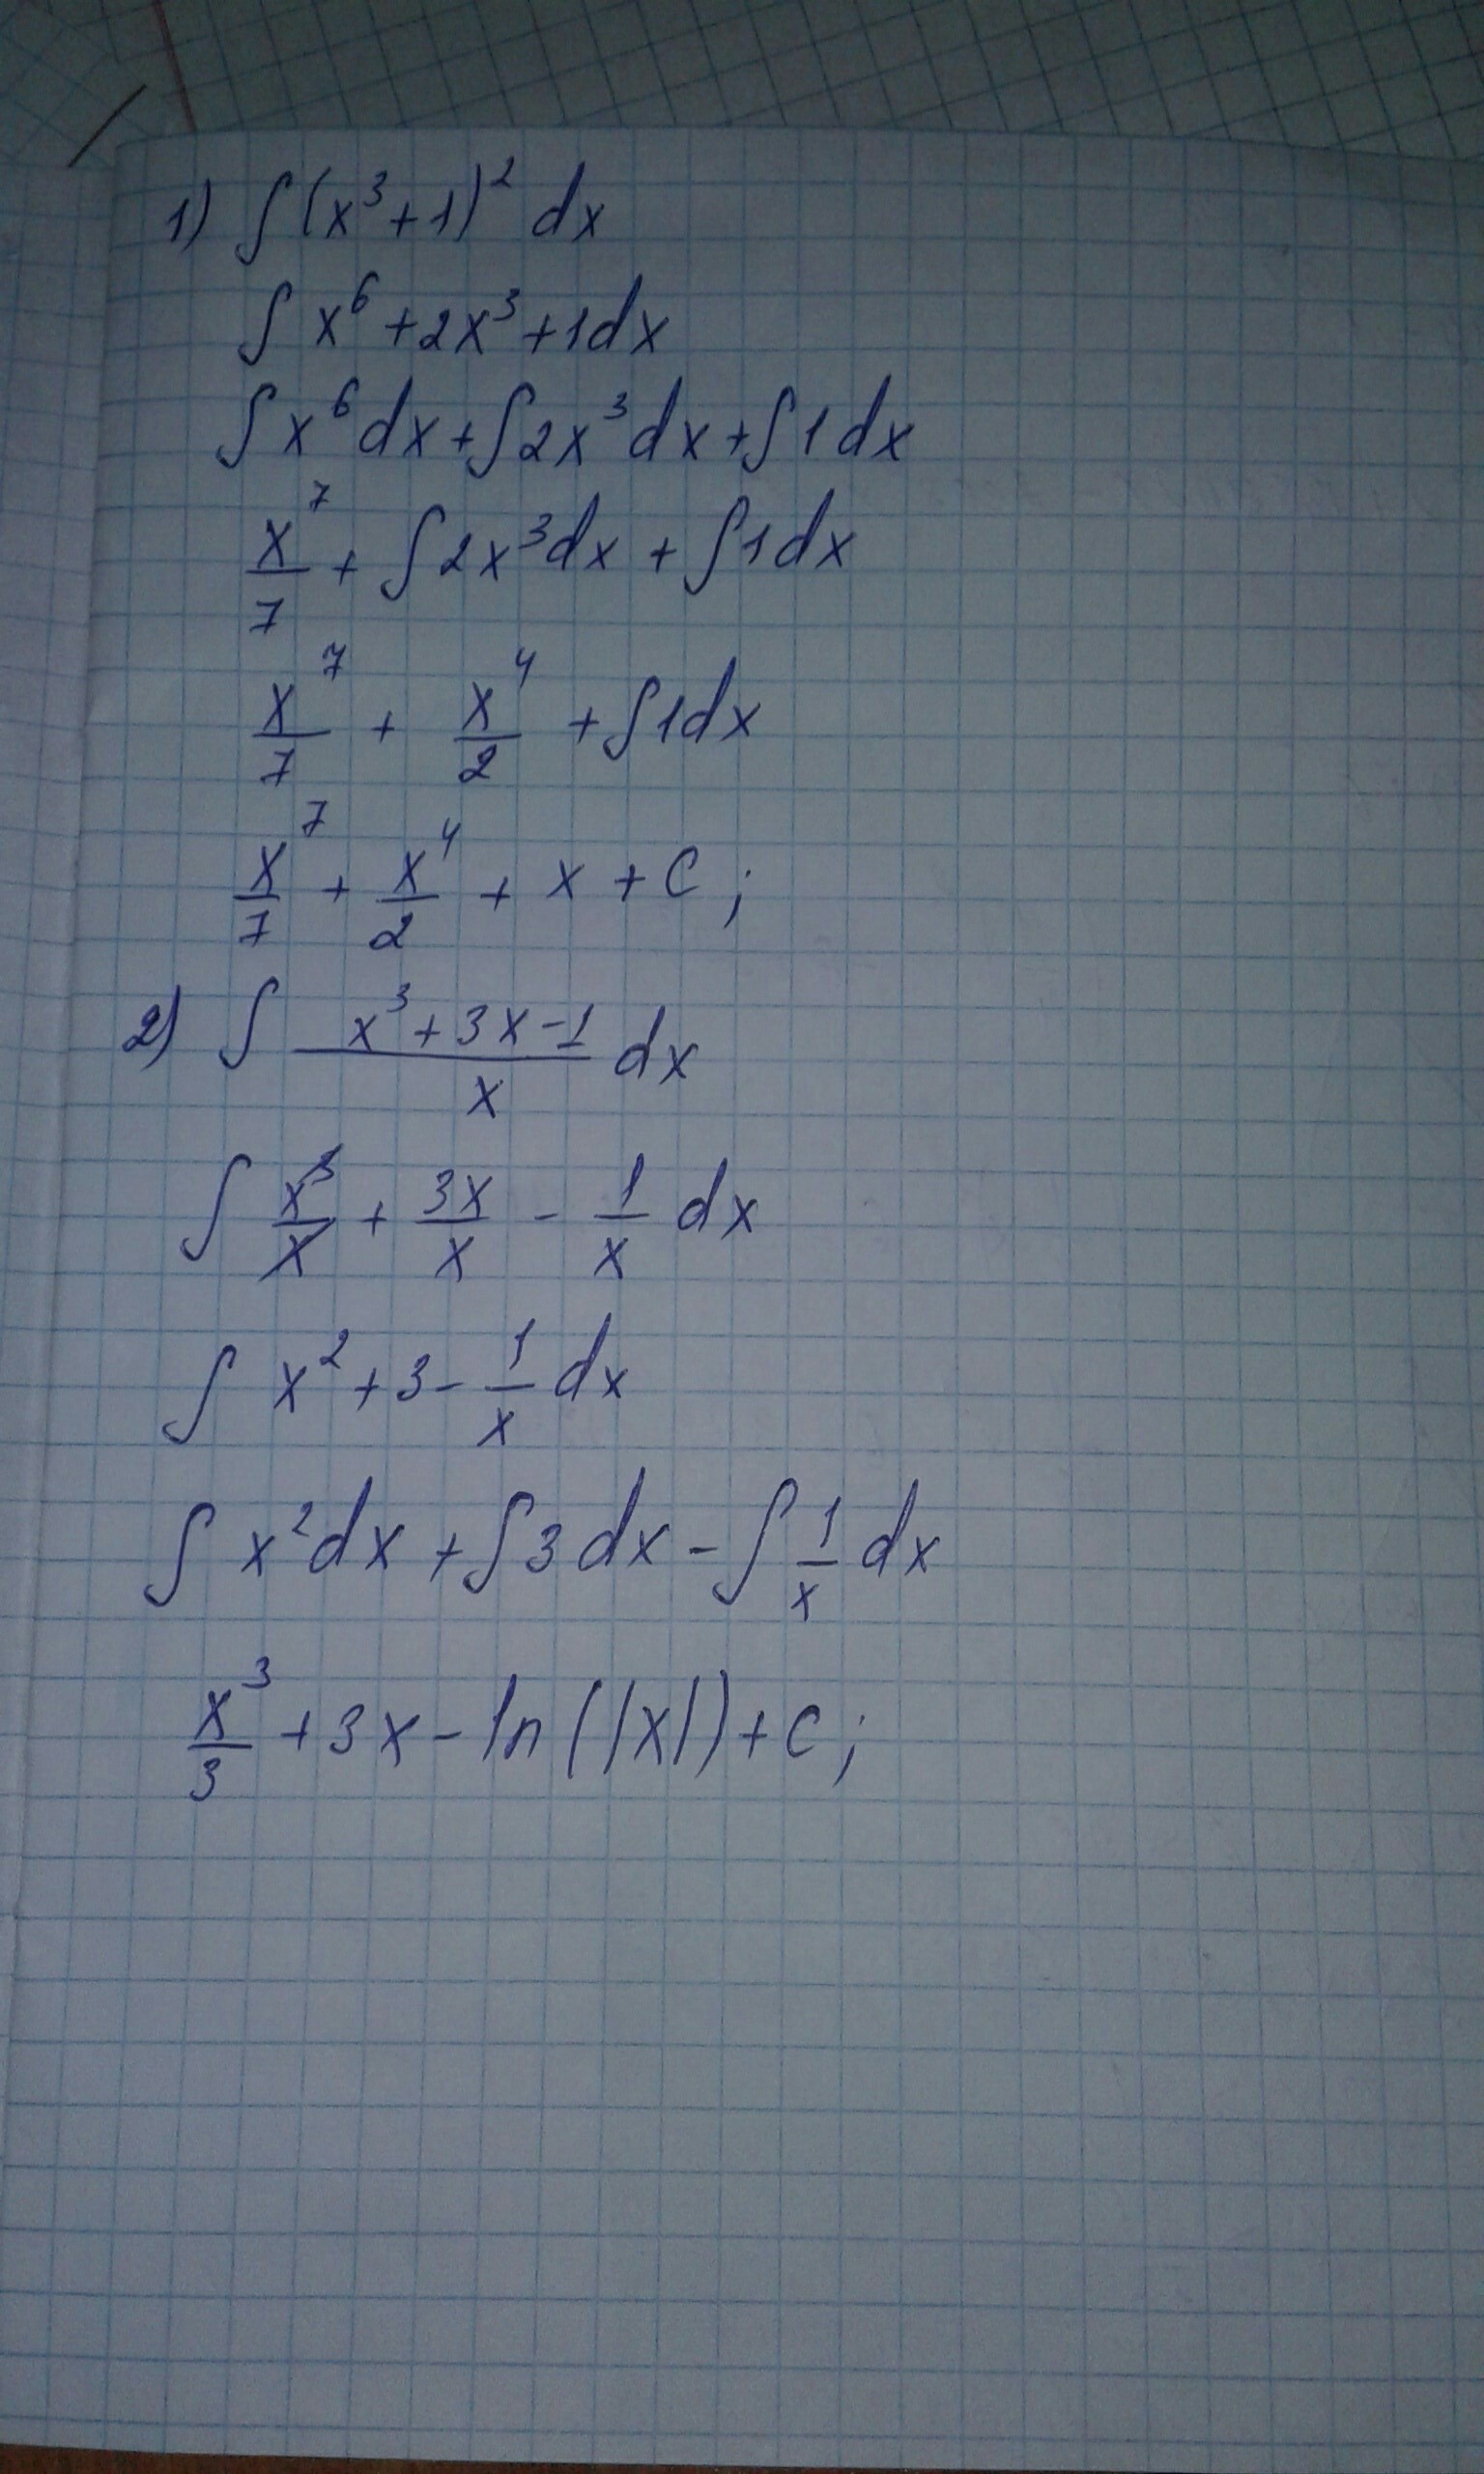 1) ∫(x³+1)² dx
∫ x⁶+2x³+1dx
∫x⁶dx+∫2x³dx+∫1dx
x⁷/7 + ∫2x³dx + ∫1dx
x⁷/7 + x⁴/2 + ∫1dx
x⁷/7 + x⁴/2 + x + C;
2) ∫ (x³+3x-1)/x dx
∫ x³/x + 3x/x - 1/x dx
∫ x²+3-1/x dx
∫ x²dx+∫3dx-∫1/x dx
x³/3+3x-ln(|x|)+C;